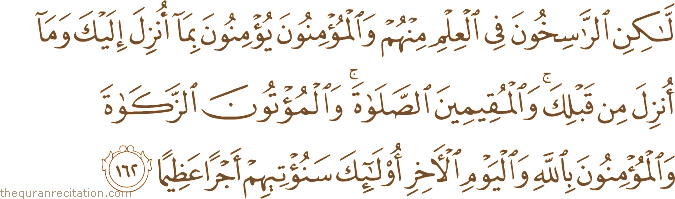 لَّٰكِنِ ٱلرَّٰسِخُونَ فِى ٱلْعِلْمِ مِنْهُمْ وَٱلْمُؤْمِنُونَ يُؤْمِنُونَ بِمَآ أُنزِلَ إِلَيْكَ وَمَآ
أُنزِلَ مِن قَبْلِكَ ۚ وَٱلْمُقِيمِينَ ٱلصَّلَوٰةَ ۚ وَٱلْمُؤْتُونَ ٱلزَّكَوٰةَ
وَٱلْمُؤْمِنُونَ بِٱللَّهِ وَٱلْيَوْمِ ٱلْءَاخِرِ أُو۟لَٰٓئِكَ سَنُؤْتِيهِمْ أَجْرًا عَظِيمًا ١٦٢
thequranrecitation.com